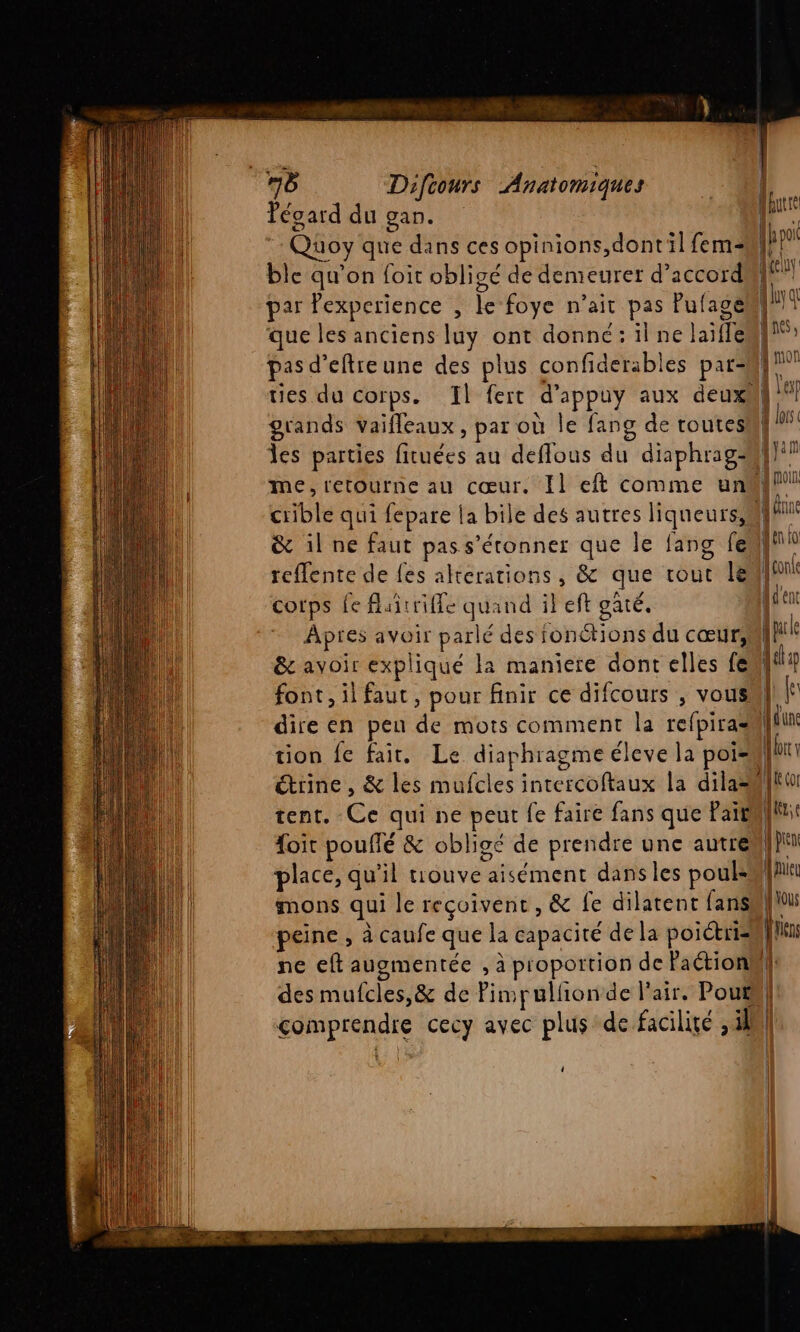 78 Discours Anatomiques
l'égard du gan.
Quoy que dans ces opinions, dont il sem-
ble qu'on soit obligé de demeurer d'accord
par l'experience , le foye n'ait pas l'usage
que les anciens luy ont donné : il ne laisse
pas d'estre une des plus considerables par-
ties du corps. Il sert d'appuy aux deux
grands vaisseaux, par où le sang de toutes
les parties situées au dessous du diaphrag-
me, retourne au cœur. Il est comme un
crible qui separe la bile des autres liqueurs,
& il ne faut pas s'étonner que le sang se
ressente de ses alterations, & que tout le
corps se flaitrisse quand il est gâté.
Apres avoir parlé des fonctions du cœur,
& avoir expliqué la maniere dont elles se
font, il faut, pour finir ce discours , vous
dire en peu de mots comment la respira-
tion se fait. Le diaphragme éleve la poi-
ctrine, & les muscles intercostaux la dila-
tent. Ce qui ne peut se faire sans que l'air
soit poussé & obligé de prendre une autre
place, qu'il trouve aisément dans les poul-
mons qui le reçoivent, & se dilatent sans
peine , à cause que la capacité de la poictri-
ne est augmentée , à proportion de l'action
des muscles, & de l'impulsion de l'air. Pour
comprendre cecy avec plus de facilité , il